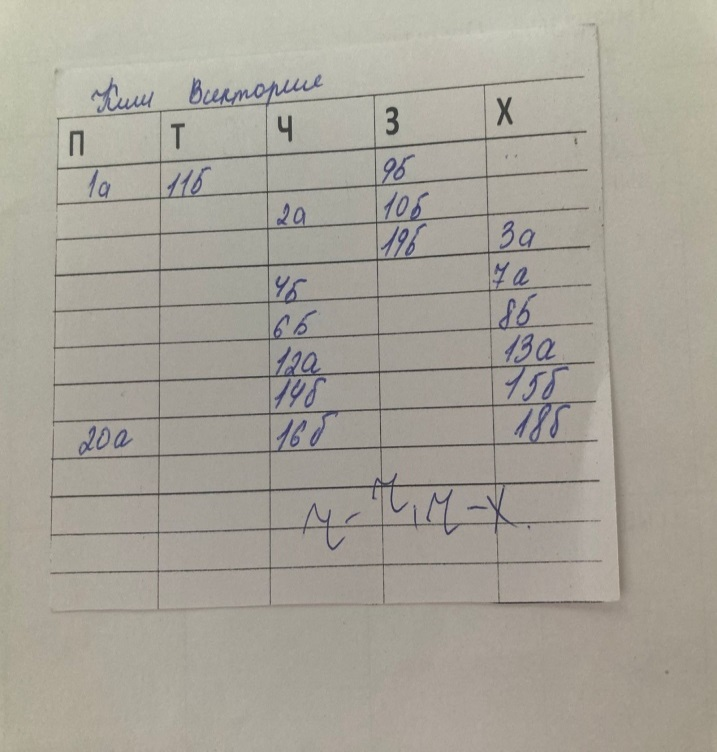 Ким Виктория
П Т Ч З Х
1а 11б 9б
2а 10б
19б 3а
4б 7а
6б 8б
12а 13а
14б 15б
20а 16б 18б
Ч-Ч, Ч-Х.